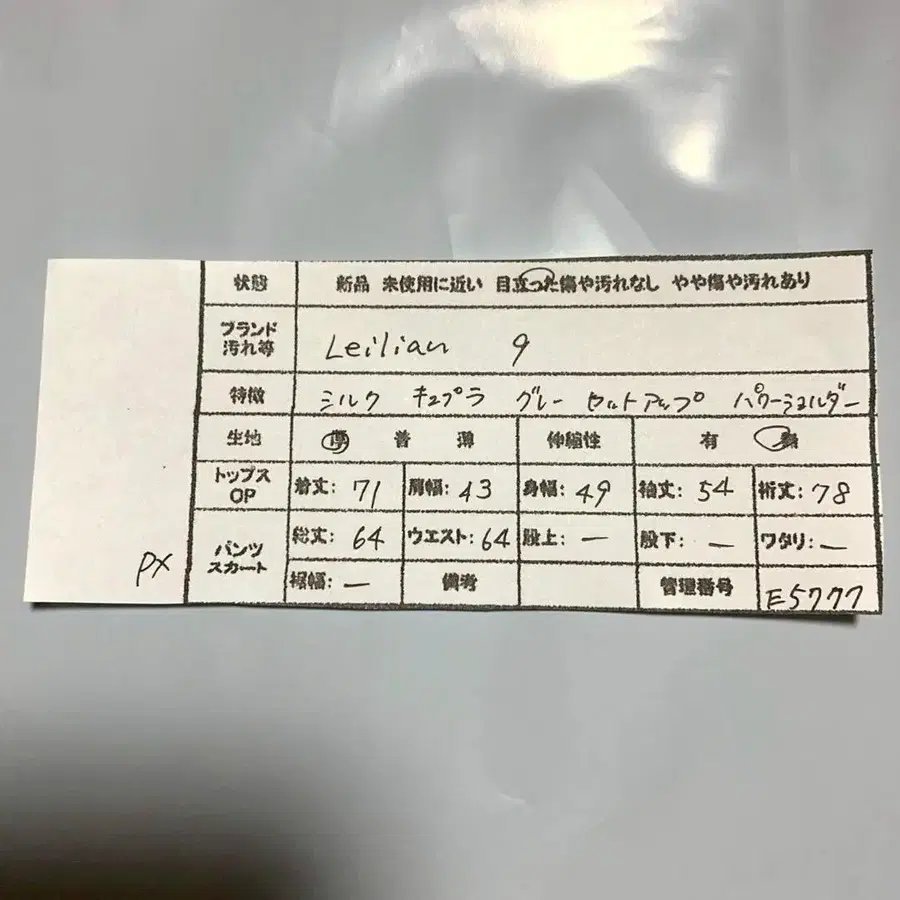 状態 新品 未使用に近い 目立った傷や汚れなし やや傷や汚れあり
ブランド
汚れ等
Leilian 9
特徴 シルク キュプラ グレー セットアップ パワーショルダー
生地 厚 普 薄 伸縮性 有 無
トップス
OP
着丈: 71 肩幅: 43 身幅: 49 袖丈: 54 裄丈: 78
パンツ
スカート
総丈: 64 ウエスト: 64 股上: ー 股下: ー ワタリ: ー
裾幅: ー 備考 管理番号 E5777
PX